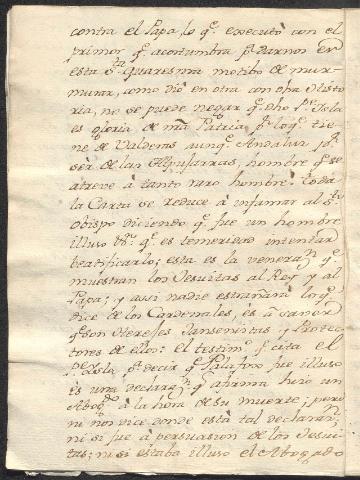 contra el Papa lo q.e executò con el
primor q.e acostumbra p.a darnos en
esta S.ta Quaresma motibo de mur-
murar, como diò en otra con otra Histo
ria, no se puede negar q.e dho P.e Isla
es gloria de nra Patria p.r lo q.e tie
ne de Valderas aunq.e Andaluz p.r
sèr de las Alpujarras, hombre q.e se
atreve à tanto raro hombre! toda
la Carta se reduce à infamar al S.r
Obispo diciendo q.e fue un hombre
illuso q.e es temeridad intentar
beatificarlo; esta es la venerac.n q.e
muestran los Jesuitas al Rey y al
Papa; y assi nadie estrañarà lo q.e
dice de los Cardenales, es à saver
q.e son Hereges Jansenistas y Protec
tores de ellos: el testim.o q.e cita el
P.e Isla p.a decir q.e Palafox fue illuso
es una declarac.n q.e afirma hizo un
Abog.do à la hora de su muerte; pero
ni nos dice donde està tal declarac.n
ni si fue à persuasion de los Jesui
tas; ni si estaba illuso el Abogado